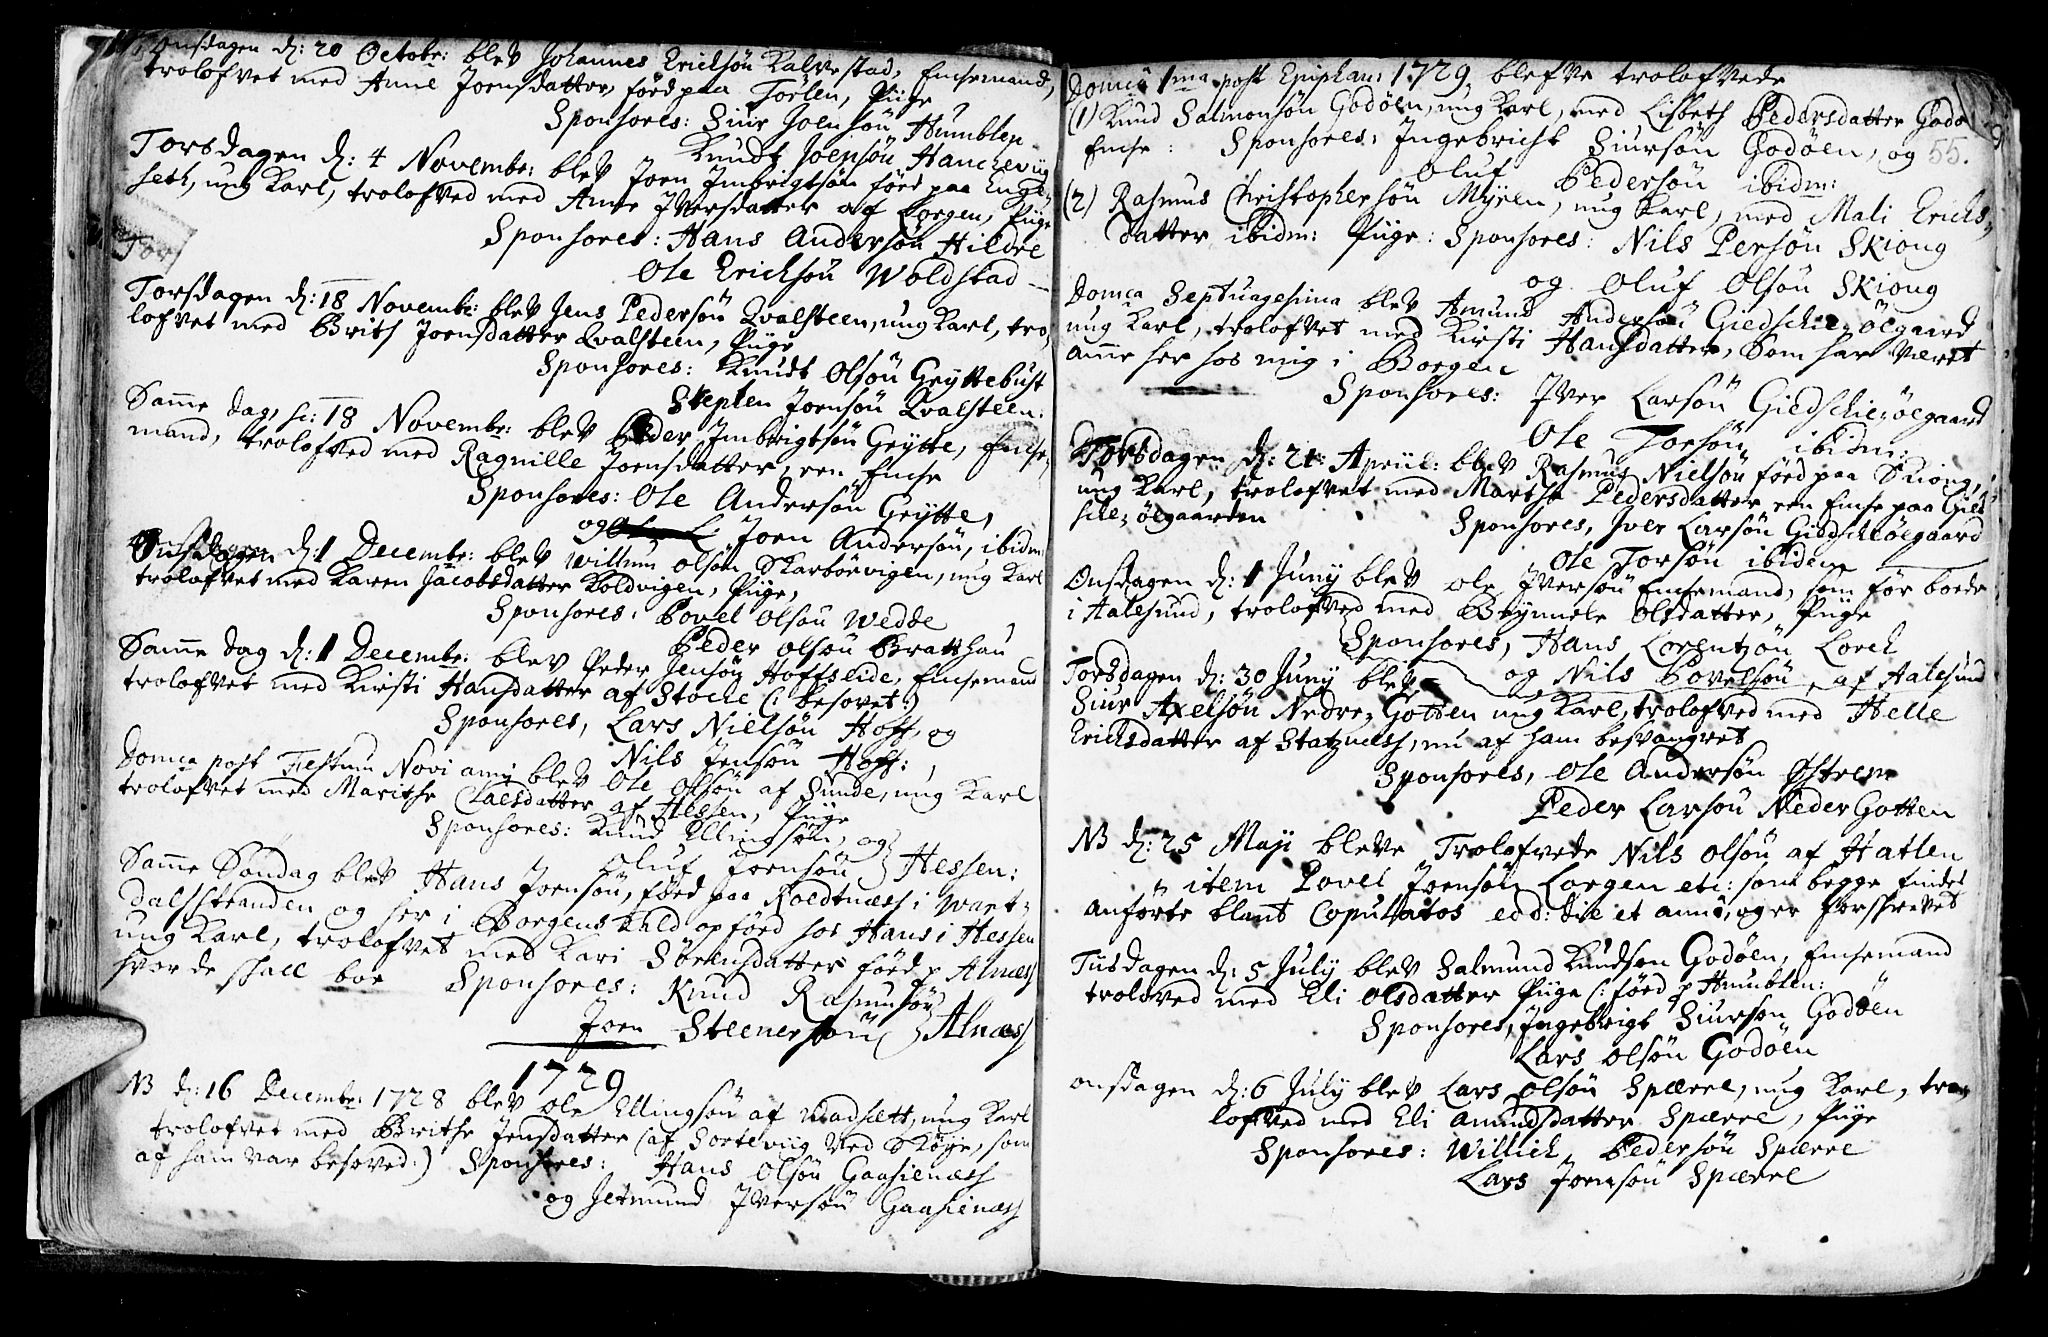 Onsdagen d: 20 Octobr: blev Johannes Erichsøn Kalvestad, Enkemand,
trolofvet med Anne Joensdatter, fød paa Tørlen, Piige
Sponsores: Siur Joensøn Humblen
Knudt Joensøn Hanchevig
Torsdagen d: 4 Novembr: blev Joen Imbrigtsøn fød paa Enge
seth, ung Karl, trolofved med Anne Iversdatter af Borgen, Piige
Sponsores: Hans Andersøn Hildre
Ole Erichsøn Woldstad
Tor
Torsdagen d: 18 Novembr: blev Jens Pedersøn Qvalsteen, ung Karl, tro,
lofvet med Brith Joensdatter Qvalsteen, Piige
Sponsores: Knudt Olsøn Gryttebust
Stephen Joensøn Qvalsteen:
Samme dag, sc: 18 Novembr: blev Peder Imbrigtsøn Grytte, Enke,
mand, trolofved med Ragnille Joensdatter, een Enke
Sponsores: Ole Andersøn Grytte,
og Joen Andersøn, ibidm
Onsdagen d: 1 Decembr: blev Willum Olsøn Skarbøevigen, ung Karl
trolofvet med Karen Jacobsdatter Koldvigen, Piige,
Sponsores: Povel Olsøn Wedde
Peder Olsøn Bratthau
Samme dag d: 1 Decembr: blev Peder Jensøn Hoffseide, Enkemand
trolofvet med Kirsti Hansdatter af Stocke (: besovet:)
Sponsores, Lars Nielsøn Hoff, og
Nils Jensøn Hoff:
Domca post Festum Novi anni blev Ole Olsøn af Sunde, ung Karl
trolofvet med Marithe Claesdatter af Hessen, Piige
Sponsores: Knud Ellingsøn, og
Oluf Joensøn } Hessen:
Samme Søndag blev Hans Joensøn, fød paa Roedtness i Wart,
dalsstranden og her i Borgens Kald opfød hos Hans i Hessen
ung Karl, trolofvet med Kari Sørensdatter fød p Alness
hvor de skall boe Sponsores: Knud Rasmusøn
Joen Steenersøn } Alness
1729
NB d: 16 Decembr: 1728 blev Ole Ellingsøn af Uradsett, ung Karl
trolofvet med Brithe Jensdatter (af Sortevig ved Skøye, som
af ham var besoved:) Sponsores: Hans Olsøn Gaasenæss
og Jetmund Iversøn Gaasenæss
Domca 1ma post Epiphan: 1729 blefve trolofvede
(1) Knud Salmonsøn Godøen, ung Karl, med Lisbeth Pedersdatter Godø
Enke: Sponsores, Ingebricht Siursøn Godøen, og
55.
Oluf Pedersøn ibidm:
(2) Rasmus Christophersøn Myren, ung Karl, med Mali Erichs,
datter ibidm: Piige: Sponsores: Nils Persøn Skiong
og Oluf Olsøn Skiong
Domca Septuagesima blev Amund Andersøn Giedschieøegaard
ung Karl, trolofvet med Kirsti Hansdatter, Som har været
amme her hos mig i Borgen
Sponsores: Iver Larsøn Giedschieøegaard
Ole Torsøn ibidm:
Torsdagen d: 21 Apriil: blev Rasmus Nielsøn fød paa Skiong,
ung Karl, trolofvet med Marthe Pedersdatter een Enke paa Gied
schieøegaarden
Sponsores, Iver Larsøn Giedschieøegaard
Ole Torsøn ibidem
Onsdagen d: 1 Juny blev Ole Iversøn Enkemand, som før boede
i Aalesund, trolofved med Brynnele Olsdatter, Piige
Sponsores, Hans Lorentzøn Lorck
og Nils Povelsøn, af Aalesund
Torsdagen d: 30 Juny blev
Siur Axelsøn Nedre, Gotten ung Karl, trolofved med Helle
Erichsdatter af Statzness, nu af ham besvangret
Sponsores, Ole Andersøn Østrem
Peder Larsøn NederGotten
NB d: 25 Maji bleve Trolofvede Nils Olsøn af Hatlen
item Povel Joensøn Lorgen etc: som begge findes
anførte blant Copulatos eod: die et anno, og er forskrevet
Tiisdagen d: 5 July blev Salmund Knudsøn Godøen, Enkemand
troloved med Eli Olsdatter Piige (: fød p Humblen:
Sponsores, Ingebrigt Siursøn Godøen
Lars Olsøn Godøen
onsdagen d: 6 July blev Lars Olsøn Spærre, ung Karl, tro,
lofved med Eli Amundsdatter Spærre, Piige
Sponsores: Willich Pedersøn Spærre
Lars Joensøn Spærre